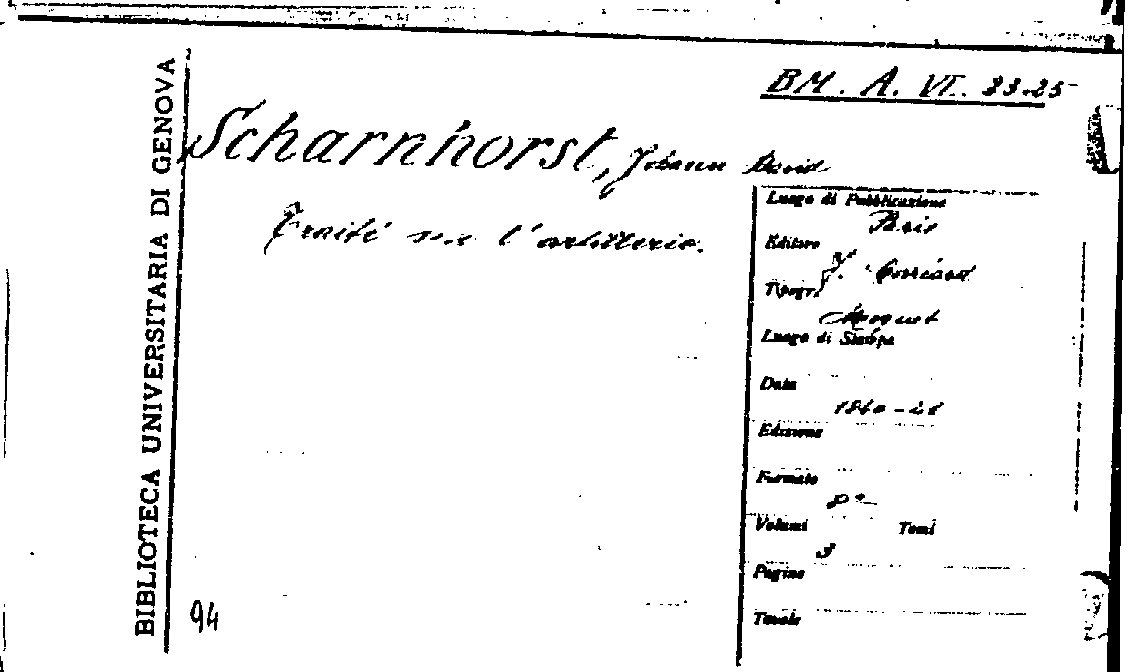 BIBLIOTECA UNIVERSITARIA DI GENOVA
BM. A. VI. 23.25
Scharnhorst, Johann David
Traité sur l'artillerie.
Luogo di Pubblicazione
Paris
Editore
J. Corréard
Tipogr.
Maquet
Luogo di Stampa
Data
1840-41
Edizione
Formato
8°
Volumi Tomi
3
Pagine
Tavole
94